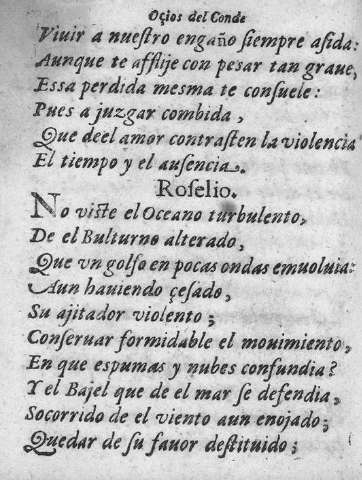 Oçios del Conde
Viuir a nuestro engaño siempre asida:
Aunque te afflije con pesar tan graue,
Essa perdida mesma te consuele:
Pues a juzgar combida,
Que deel amor contrasten la violencia
El tiempo y el ausencia.
Roselio.
No viste el Oceano turbulento,
De el Bulturno alterado,
Que vn golfo en pocas ondas emuoluia:
Aun hauiendo çesado,
Su ajitador violento;
Conseruar formidable el mouimiento,
En que espumas y nubes confundia?
Y el Bajel que de el mar se defendia,
Socorrido de el viento aun enojado;
Quedar de su fauor destituido;